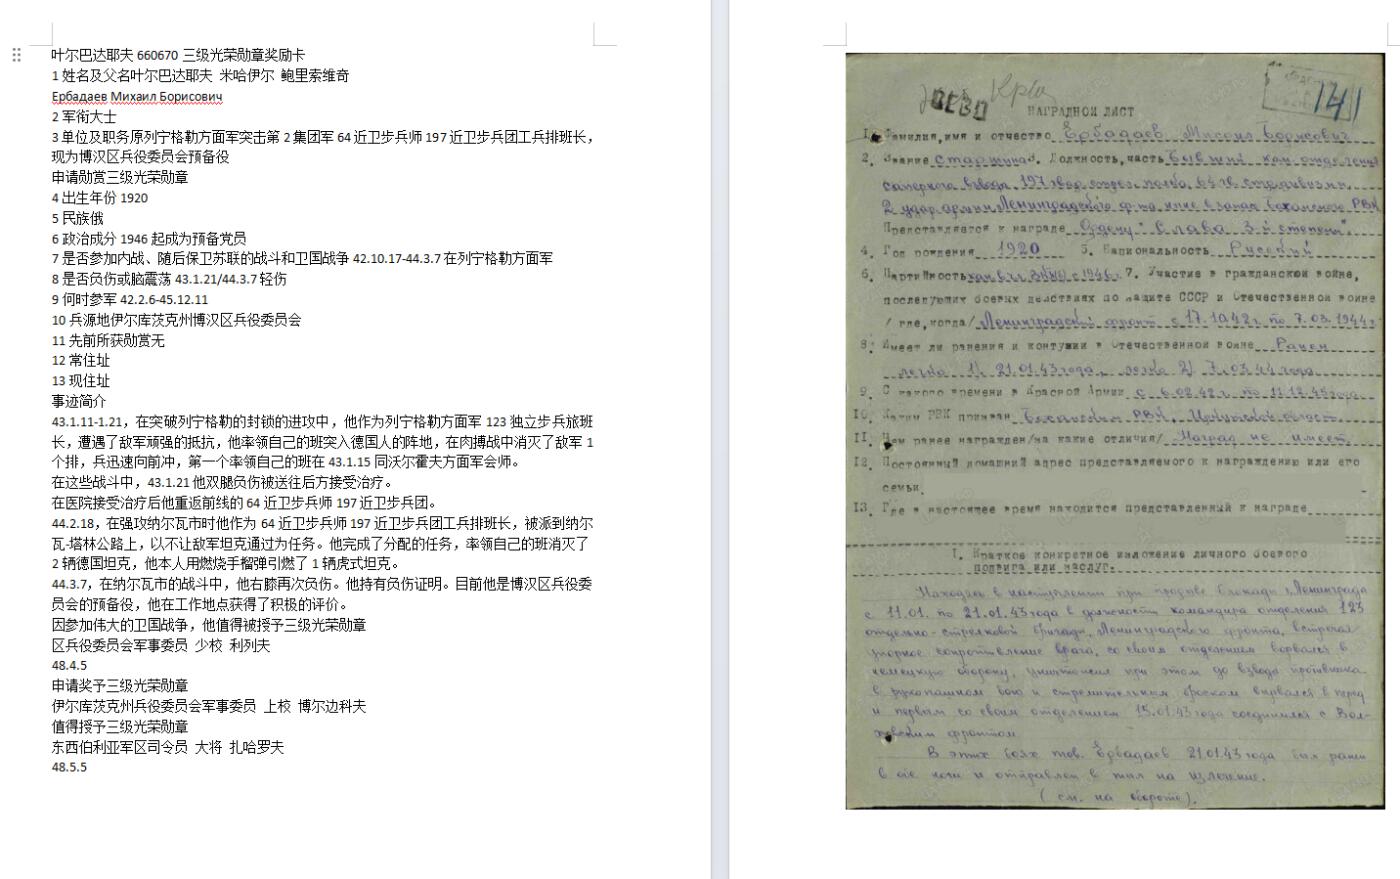 叶尔巴达耶夫 660670 三级光荣勋章奖励卡
1 姓名及父名叶尔巴达耶夫 米哈伊尔 鲍里索维奇
Ербадаев Михаил Борисович
2 军衔大士
3 单位及职务原列宁格勒方面军突击第 2 集团军 64 近卫步兵师 197 近卫步兵团工兵排班长，
现为博汉区兵役委员会预备役
申请勋赏三级光荣勋章
4 出生年份 1920
5 民族俄
6 政治成分 1946 起成为预备党员
7 是否参加内战、随后保卫苏联的战斗和卫国战争 42.10.17-44.3.7 在列宁格勒方面军
8 是否负伤或脑震荡 43.1.21/44.3.7 轻伤
9 何时参军 42.2.6-45.12.11
10 兵源地伊尔库茨克州博汉区兵役委员会
11 先前所获勋赏无
12 常住址
13 现住址
事迹简介
43.1.11-1.21，在突破列宁格勒的封锁的进攻中，他作为列宁格勒方面军 123 独立步兵旅班
长，遭遇了敌军顽强的抵抗，他率领自己的班突入德国人的阵地，在肉搏战中消灭了敌军 1
个排，兵迅速向前冲，第一个率领自己的班在 43.1.15 同沃尔霍夫方面军会师。
在这些战斗中，43.1.21 他双腿负伤被送往后方接受治疗。
在医院接受治疗后他重返前线的 64 近卫步兵师 197 近卫步兵团。
44.2.18，在强攻纳尔瓦市时他作为 64 近卫步兵师 197 近卫步兵团工兵排班长，被派到纳尔
瓦-塔林公路上，以不让敌军坦克通过为任务。他完成了分配的任务，率领自己的班消灭了
2 辆德国坦克，他本人用燃烧手榴弹引燃了 1 辆虎式坦克。
44.3.7，在纳尔瓦市的战斗中，他右膝再次负伤。他持有负伤证明。目前他是博汉区兵役委
员会的预备役，他在工作地点获得了积极的评价。
因参加伟大的卫国战争，他值得被授予三级光荣勋章
区兵役委员会军事委员 少校 利列夫
48.4.5
申请奖予三级光荣勋章
伊尔库茨克州兵役委员会军事委员 上校 博尔边科夫
值得授予三级光荣勋章
东西伯利亚军区司令员 大将 扎哈罗夫
48.5.5
141
НАГРАДНОЙ ЛИСТ
1. Фамилия, имя и отчество Ербадаев Михаил Борисович
2. Звание старшина 3. Должность, часть Бывший ком. отделения
саперного взвода 197 гвар. стрел. полка, 64 гв. стр. дивизии,
2 удар. армии Ленинградского ф-та ныне в запасе Боханского РВК
Представляется к награде Ордену "Слава 3-й степени".
4. Год рождения 1920 5. Национальность Русский
6. Партийность канд. в чл. ВКП(б) с 1946г. 7. Участие в гражданской войне,
последующих боевых действиях по защите СССР и Отечественной войне
/где, когда/ Ленинградский фронт с 17.10.42г. по 7.03.1944г.
8. Имеет ли ранения и контузии в Отечественной войне Ранен
легко 1) 21.01.43 года, легко 2) 7.03.44 года
9. С какого времени в Красной Армии с 6.02.42г. по 11.12.45 года
10. Каким РВК призван Боханским РВК, Иркутской област.
11. Чем ранее награжден/за какие отличия/ Наград не имеет
12. Постоянный домашний адрес представляемого к награждению или его
семьи
13. Где в настоящее время находится представленный к награде
I. Краткое конкретное изложение личного боевого
подвига или заслуг.
Находясь в наступлении при прорыве блокады г. Ленинграда
с 11.01. по 21.01.43 года в должности командира отделения 123
отдельно-стрелковой бригады, Ленинградского фронта, встречая
упорное сопротивление врага, со своим отделением ворвался в
немецкую оборону, уничтожил при этом до взвода противника
в рукопашном бою и стремительным броском вырвался вперед
и первым со своим отделением 15.01.43 года соединился с Вол-
ховским фронтом.
В этих боях тов. Ербадаев 21.01.43 года был ранен
в обе ноги и отправлен в тыл на излечение.
(см. на обороте).